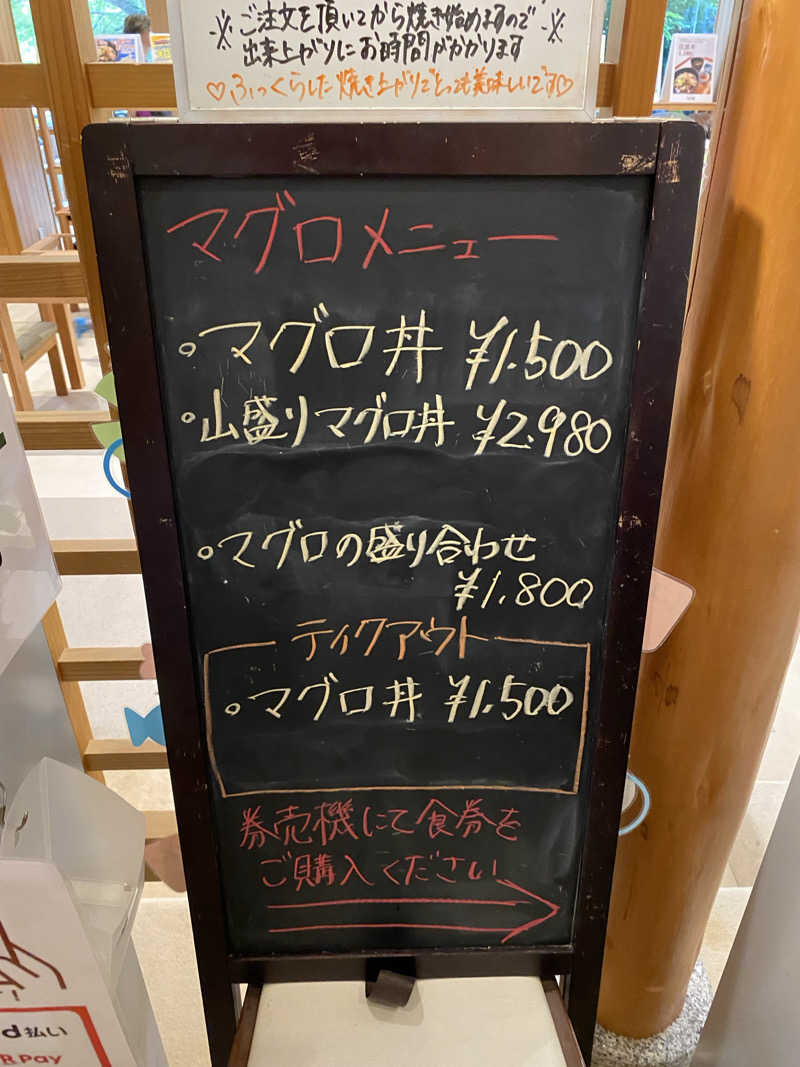 ご注文を頂いてから焼き始めますので
出来上がりにお時間がかかります
♡ふっくらした焼き上がりでとっても美味しいです♡
マグロメニュー
・マグロ丼 ¥1.500
・山盛りマグロ丼 ¥2.980
・マグロの盛り合わせ
¥1.800
テイクアウト
・マグロ丼 ¥1.500
券売機にて食券を
ご購入ください
d払い
R Pay